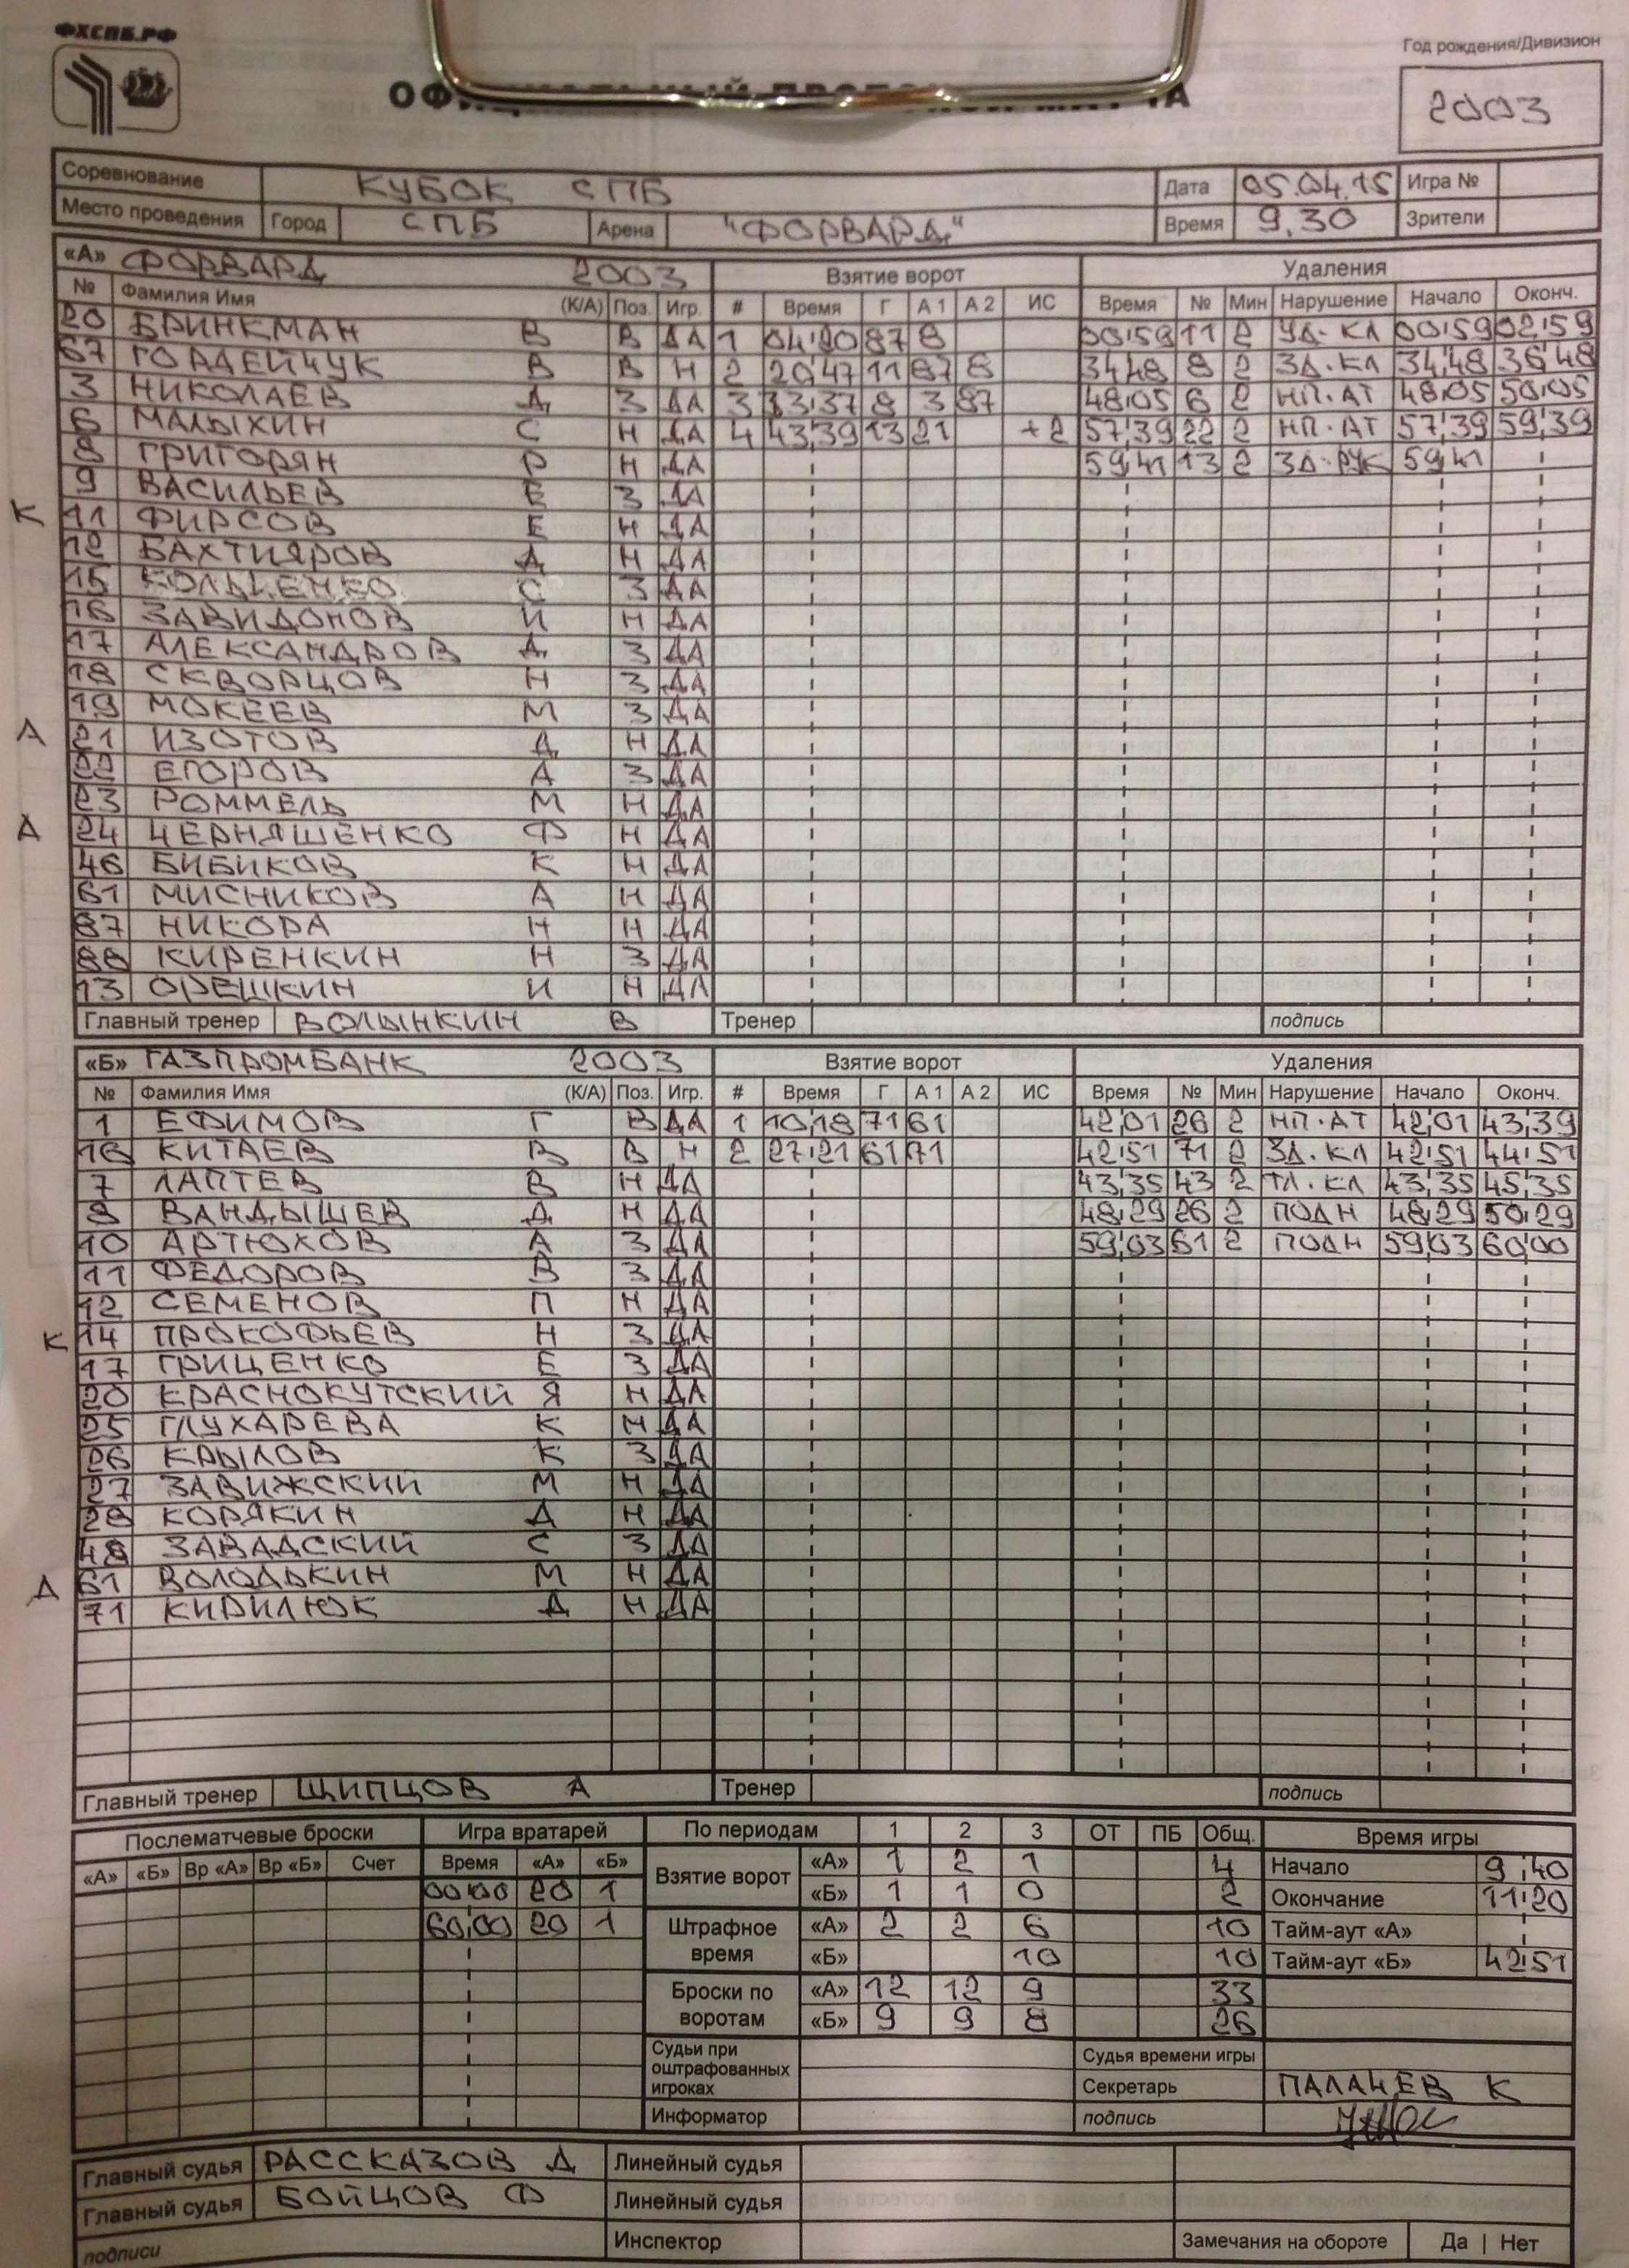 ФХСПБ.РФ
Год рождения/Дивизион
2003
Соревнование КУБОК СПБ Дата 05.04.15 Игра №
Место проведения Город СПБ Арена "ФОРВАРД" Время 9,30 Зрители
«А» ФОРВАРД 2003 Взятие ворот Удаления
№ Фамилия Имя (К/А) Поз. Игр. # Время Г А 1 А 2 ИС Время № Мин Нарушение Начало Оконч.
20 БРИНКМАН В В ДА 1 04:20 87 8 00:59 11 2 УД.КЛ 00:59 02:59
67 ГОРДЕЙЧУК В В Н 2 20:47 11 87 8 34:48 8 2 ЗД.КЛ 34:48 36:48
3 НИКОЛАЕВ Д З ДА 3 33:37 8 3 87 48:05 6 2 НП.АТ 48:05 50:05
6 МАЛЫХИН С Н ДА 4 43:39 13 21 +2 57:39 22 2 НП.АТ 57:39 59:39
8 ГРИГОРЯН Р Н ДА 59:41 13 2 ЗД.РУК 59:41
9 ВАСИЛЬЕВ Е З ДА
К 11 ФИРСОВ Е Н ДА
12 БАХТИЯРОВ Д Н ДА
15 С З ДА
16 ЗАВИДОНОВ И Н ДА
17 АЛЕКСАНДРОВ Д З ДА
18 СКВОРЦОВ Н З ДА
19 МОКЕЕВ М З ДА
А 21 ИЗОТОВ Д Н ДА
22 ЕГОРОВ А З ДА
23 РОММЕЛЬ М Н ДА
А 24 ЧЕРНЯШЕНКО Ф Н ДА
46 БИБИКОВ К Н ДА
61 МИСНИКОВ А Н ДА
87 НИКОРА Н Н ДА
88 КИРЕНКИН Н З ДА
13 ОРЕШКИН И Н ДА
Главный тренер ВОЛЫНКИН В Тренер подпись
«Б» ГАЗПРОМБАНК 2003 Взятие ворот Удаления
№ Фамилия Имя (К/А) Поз. Игр. # Время Г А 1 А 2 ИС Время № Мин Нарушение Начало Оконч.
1 ЕФИМОВ Г В ДА 1 10:18 71 61 42:01 26 2 НП.АТ 42:01 43:39
16 КИТАЕВ В В Н 2 27:21 61 71 42:51 71 2 ЗД.КЛ 42:51 44:51
7 ЛАПТЕВ В Н ДА 43:35 43 2 ТЛ.КЛ 43:35 45:35
8 ВАНДЫШЕВ Д Н ДА 48:29 26 2 ПОДН 48:29 50:29
10 АРТЮХОВ А З ДА 59:03 61 2 ПОДН 59:03 60:00
11 ФЕДОРОВ В З ДА
12 СЕМЕНОВ П Н ДА
К 14 ПРОКОФЬЕВ Н З ДА
17 ГРИЦЕНКО Е З ДА
20 КРАСНОКУТСКИЙ Я Н ДА
25 ГЛУХАРЕВА К Н ДА
26 КРЫЛОВ К З ДА
27 ЗАВИЖСКИЙ М Н ДА
28 КОРЯКИН Д Н ДА
48 ЗАВАДСКИЙ С З ДА
А 61 ВОЛОДЬКИН М Н ДА
71 КИРИЛЮК Д Н ДА
Главный тренер ЩИПЦОВ А Тренер подпись
Послематчевые броски Игра вратарей По периодам 1 2 3 ОТ ПБ Общ. Время игры
«А» «Б» Вр «А» Вр «Б» Счет Время «А» «Б» Взятие ворот «А» 1 2 1 4 Начало 9:40
00:00 20 1 «Б» 1 1 0 2 Окончание 11:20
60:00 20 1 Штрафное время «А» 2 2 6 10 Тайм-аут «А»
«Б» 10 10 Тайм-аут «Б» 42:51
Броски по воротам «А» 12 12 9 33
«Б» 9 9 8 26
Судьи при оштрафованных игроках Судья времени игры
Секретарь ПАЛАЧЕВ К
Информатор подпись
Главный судья РАССКАЗОВ Д Линейный судья
Главный судья БОЙЦОВ Ф Линейный судья
подписи Инспектор Замечания на обороте Да | Нет